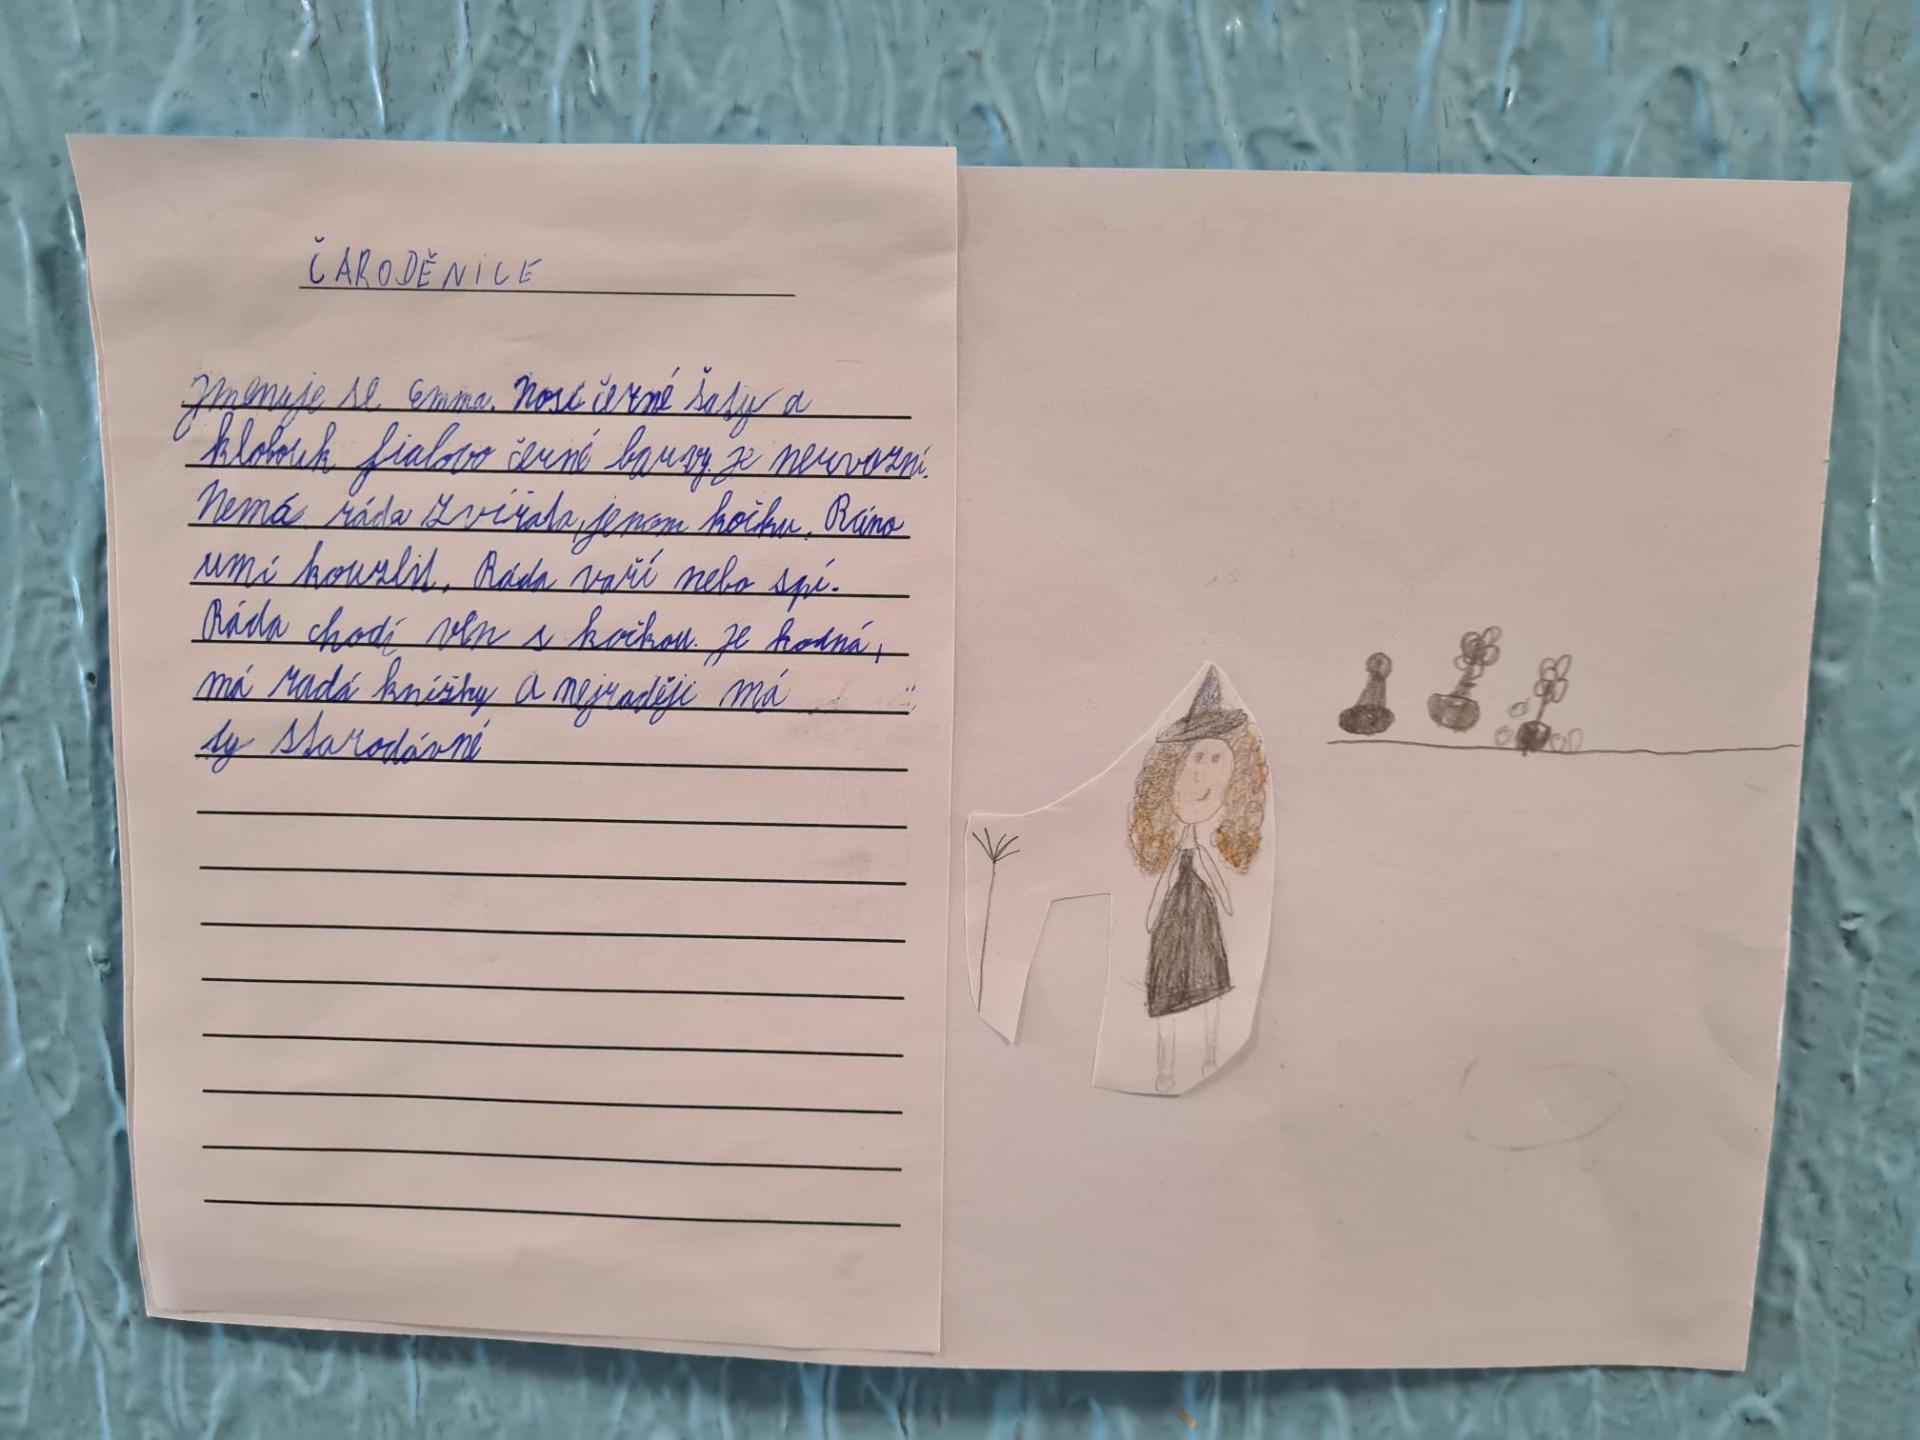 ČARODĚNICE
Jmenuje se Emma. Nosí černé šaty a
klobouk fialovo černé barvy. Je nervozní.
Nemá ráda zvířata, jenom kočku. Ráno
umí kouzlit. Ráda vaří nebo spí.
Ráda chodí ven s kočkou. Je hodná,
má radá knížky a nejraději má
ty starodávné